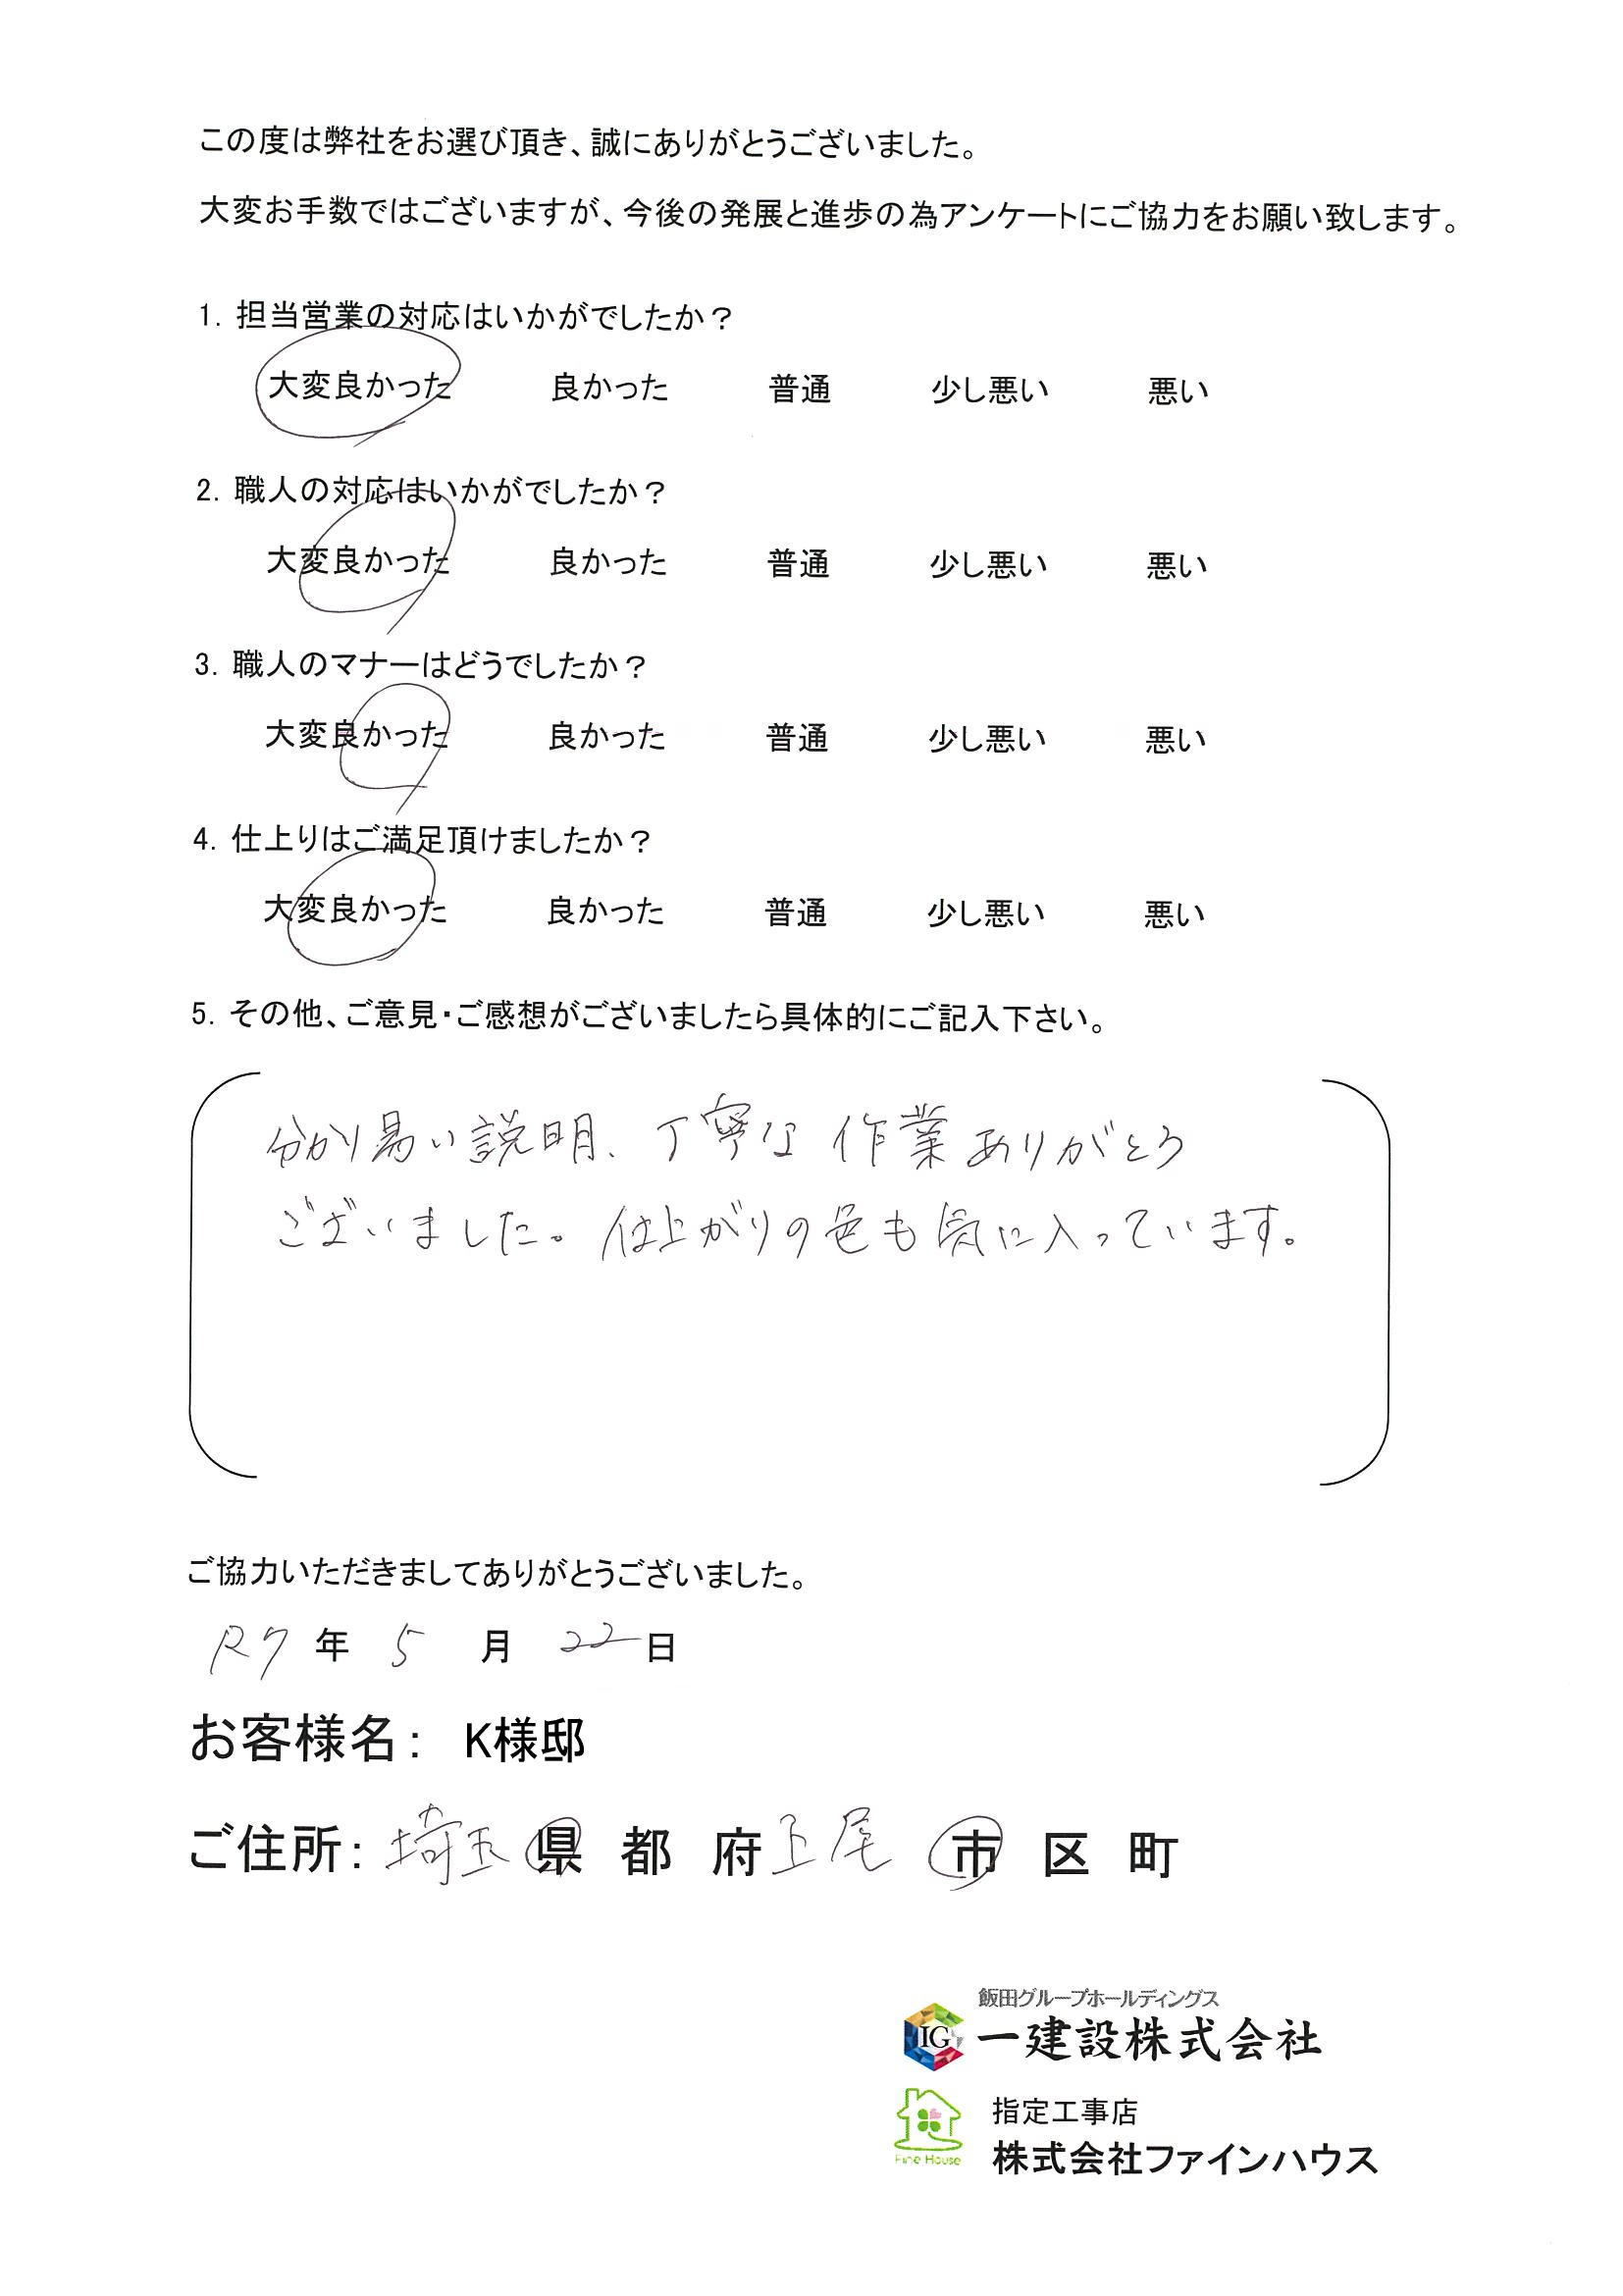 この度は弊社をお選び頂き、誠にありがとうございました。
大変お手数ではございますが、今後の発展と進歩の為アンケートにご協力をお願い致します。
1. 担当営業の対応はいかがでしたか？
大変良かった 良かった 普通 少し悪い 悪い
2. 職人の対応はいかがでしたか？
大変良かった 良かった 普通 少し悪い 悪い
3. 職人のマナーはどうでしたか？
大変良かった 良かった 普通 少し悪い 悪い
4. 仕上りはご満足頂けましたか？
大変良かった 良かった 普通 少し悪い 悪い
5. その他、ご意見・ご感想がございましたら具体的にご記入下さい。
分かり易い説明、丁寧な作業ありがとう
ございました。仕上がりの色も気に入っています。
ご協力いただきましてありがとうございました。
R7 年 5 月 22 日
お客様名： K様邸
ご住所：埼玉 県 都 府 上尾 市 区 町
飯田グループホールディングス
IG 一建設株式会社
指定工事店
Fine House 株式会社ファインハウス